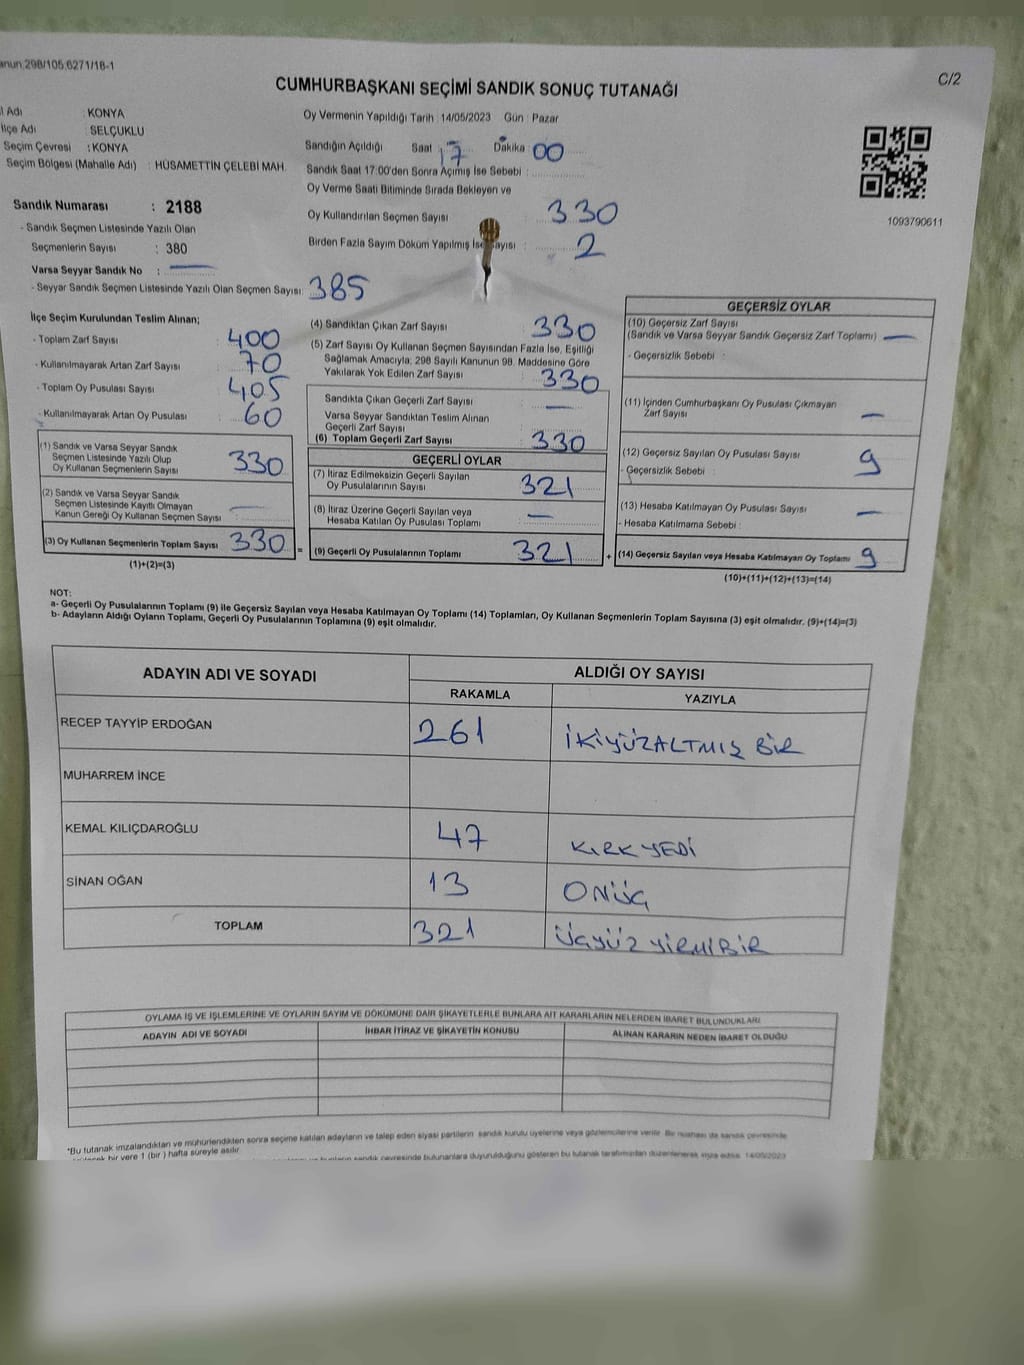 anun;298/105,6271/18-1
C/2
CUMHURBAŞKANI SEÇİMİ SANDIK SONUÇ TUTANAĞI
l Adı : KONYA
İlçe Adı : SELÇUKLU
Seçim Çevresi : KONYA
Seçim Bölgesi (Mahalle Adı) : HÜSAMETTİN ÇELEBİ MAH.
Sandık Numarası : 2188
- Sandık Seçmen Listesinde Yazılı Olan
Seçmenlerin Sayısı : 380
Varsa Seyyar Sandık No : —
- Seyyar Sandık Seçmen Listesinde Yazılı Olan Seçmen Sayısı: 385
Oy Vermenin Yapıldığı Tarih : 14/05/2023 Gün : Pazar
Sandığın Açıldığı Saat : 17 Dakika : 00
Sandık Saat 17:00'den Sonra Açımış İse Sebebi :
Oy Verme Saati Bitiminde Sırada Bekleyen ve
Oy Kullandırılan Seçmen Sayısı : 330
Birden Fazla Sayım Döküm Yapılmış İse Sayısı : 2
1093790611
İlçe Seçim Kurulundan Teslim Alınan;
- Toplam Zarf Sayısı : 400
- Kullanılmayarak Artan Zarf Sayısı : 70
- Toplam Oy Pusulası Sayısı : 405
- Kullanılmayarak Artan Oy Pusulası : 60
(1) Sandık ve Varsa Seyyar Sandık
Seçmen Listesinde Yazılı Olup
Oy Kullanan Seçmenlerin Sayısı : 330
(2) Sandık ve Varsa Seyyar Sandık
Seçmen Listesinde Kayıtlı Olmayan
Kanun Gereği Oy Kullanan Seçmen Sayısı : —
(3) Oy Kullanan Seçmenlerin Toplam Sayısı 330
(1)+(2)=(3)
=
(4) Sandıktan Çıkan Zarf Sayısı : 330
(5) Zarf Sayısı Oy Kullanan Seçmen Sayısından Fazla İse, Eşitliği
Sağlamak Amacıyla; 298 Sayılı Kanunun 98. Maddesine Göre
Yakılarak Yok Edilen Zarf Sayısı : 330
Sandıkta Çıkan Geçerli Zarf Sayısı : —
Varsa Seyyar Sandıktan Teslim Alınan
Geçerli Zarf Sayısı :
(6) Toplam Geçerli Zarf Sayısı : 330
GEÇERLİ OYLAR
(7) İtiraz Edilmeksizin Geçerli Sayılan
Oy Pusulalarının Sayısı : 321
(8) İtiraz Üzerine Geçerli Sayılan veya
Hesaba Katılan Oy Pusulası Toplamı : —
(9) Geçerli Oy Pusulalarının Toplamı : 321
+
GEÇERSİZ OYLAR
(10) Geçersiz Zarf Sayısı
(Sandık ve Varsa Seyyar Sandık Geçersiz Zarf Toplamı) : —
- Geçersizlik Sebebi :
(11) İçinden Cumhurbaşkanı Oy Pusulası Çıkmayan
Zarf Sayısı : —
(12) Geçersiz Sayılan Oy Pusulası Sayısı : 9
- Geçersizlik Sebebi :
(13) Hesaba Katılmayan Oy Pusulası Sayısı : —
- Hesaba Katılmama Sebebi :
(14) Geçersiz Sayılan veya Hesaba Katılmayan Oy Toplamı : 9
(10)+(11)+(12)+(13)=(14)
NOT:
a- Geçerli Oy Pusulalarının Toplamı (9) ile Geçersiz Sayılan veya Hesaba Katılmayan Oy Toplamı (14) Toplamları, Oy Kullanan Seçmenlerin Toplam Sayısına (3) eşit olmalıdır. (9)+(14)=(3)
b- Adayların Aldığı Oyların Toplamı, Geçerli Oy Pusulalarının Toplamına (9) eşit olmalıdır.
ADAYIN ADI VE SOYADI ALDIĞI OY SAYISI
RAKAMLA YAZIYLA
RECEP TAYYİP ERDOĞAN 261 İKİYÜZALTMIŞ BİR
MUHARREM İNCE
KEMAL KILIÇDAROĞLU 47 KIRK YEDİ
SİNAN OĞAN 13 ONÜÇ
TOPLAM 321 ÜÇYÜZ YİRMİBİR
OYLAMA İŞ VE İŞLEMLERİNE VE OYLARIN SAYIM VE DÖKÜMÜNE DAİR ŞİKAYETLERLE BUNLARA AİT KARARLARIN NELERDEN İBARET BULUNDUKLARI
ADAYIN ADI VE SOYADI İHBAR İTİRAZ VE ŞİKAYETİN KONUSU ALINAN KARARIN NEDEN İBARET OLDUĞU
*Bu tutanak imzalandıktan ve mühürlendikten sonra seçime katılan adayların ve talep eden siyasi partilerin sandık kurulu üyelerine veya gözlemcilerine verilir. Bir nüshası da sandık çevresinde
bir yere 1 (bir ) hafta süreyle asılır.
sandık çevresinde bulunanlara duyurulduğunu gösteren bu tutanak tarafımızdan düzenlenerek imza edildi. 14/05/2023